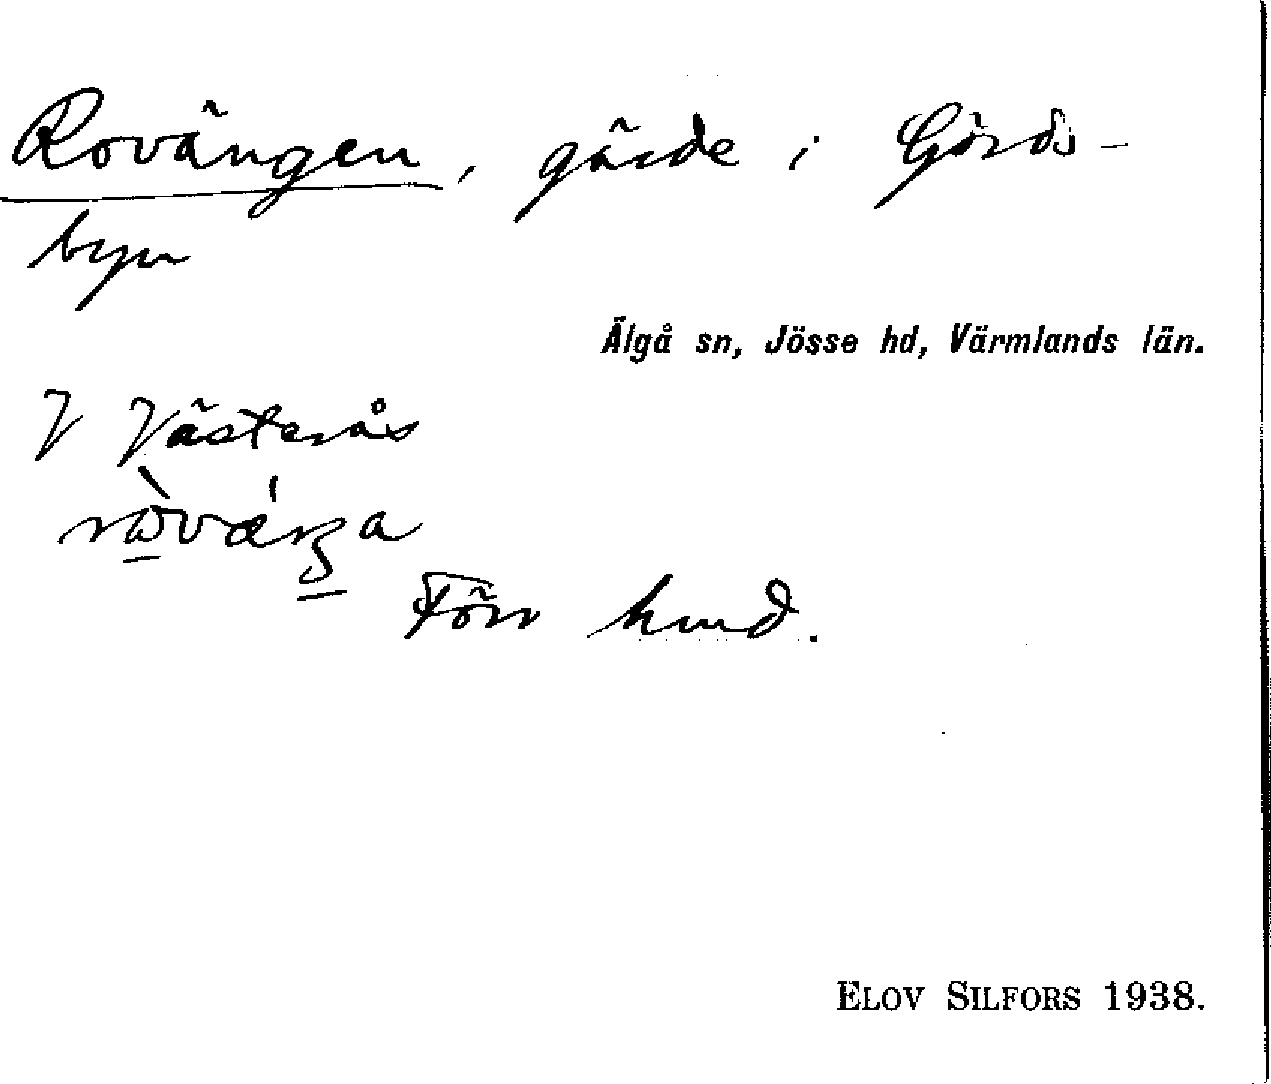 Rovängen, gärde i Görds-
byn
Älgå sn, Jösse hd, Värmlands län.
V Västerås
Förr hmd.
ELOV SILFORS 1938.